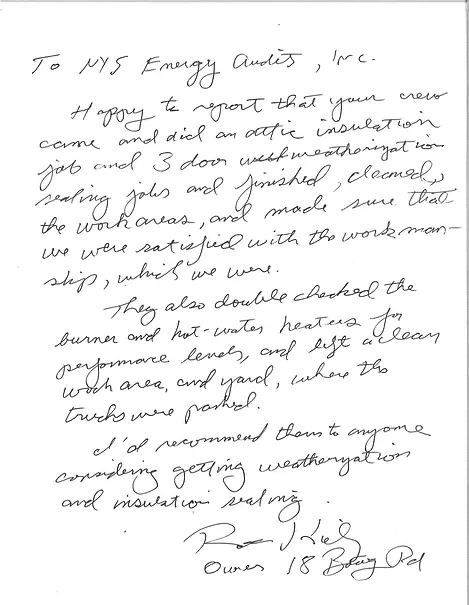 To NYS Energy Audits, Inc.
Happy to report that your crew
came and did an attic insulation
job and 3 door weatherization
sealing jobs and finished, cleaned,
the work areas, and made sure that
we were satisfied with the workman-
ship, which we were.
They also double checked the
burner and hot-water heaters for
performance levels, and left a clean
work area, and yard, where the
trucks were parked.
I'd recommend them to anyone
considering getting weatheryation
and insulation sealing.
Owner 18 Rd